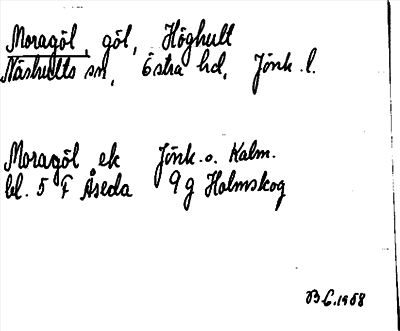 Moragöl, göl, Höghult
Näshults sn, Östra hd, Jönk. l.
Moragöl ek Jönk. o. Kalm.
bl. 5 F Åseda 9g Holmskog
B.E. 1968